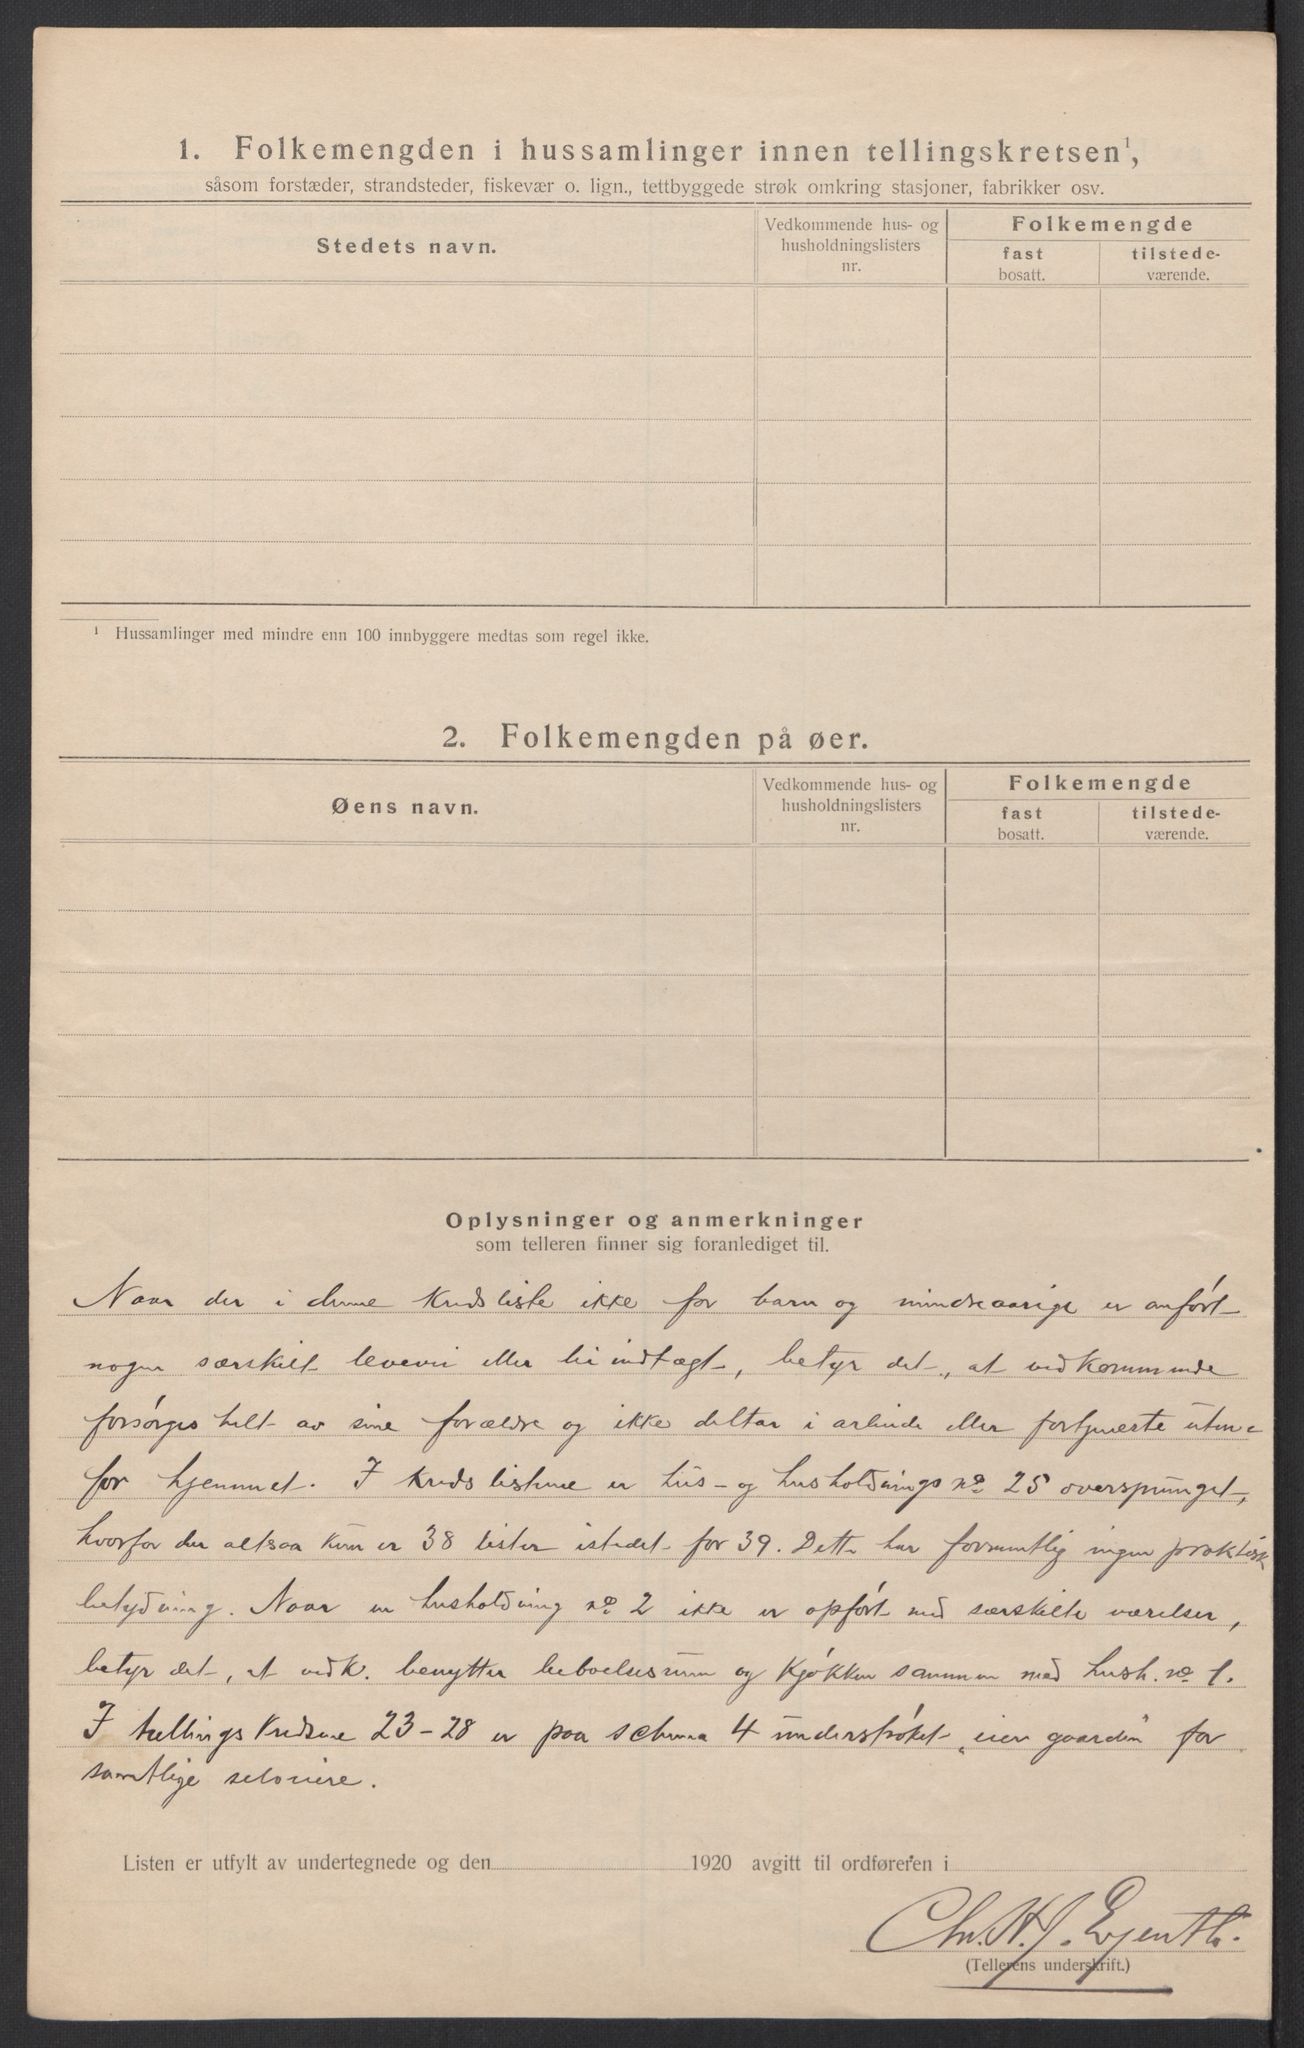 1. Folkemengden i hussamlinger innen tellingskretsen¹,
såsom forstæder, strandsteder, fiskevær o. lign., tettbyggede strøk omkring stasjoner, fabrikker osv.
Stedets navn.
Vedkommende hus- og
husholdningslisters
nr.
Folkemengde
fast
bosatt.
tilstede-
værende.
¹ Hussamlinger med mindre enn 100 innbyggere medtas som regel ikke.
2. Folkemengden på øer.
Øens navn.
Vedkommende hus- og
husholdningslisters
nr.
Folkemengde
fast
bosatt.
tilstede-
værende.
Oplysninger og anmerkninger
som telleren finner sig foranlediget til.
Naar der i denne kredsliste ikke for barn og mindreaarige er anført
nogen særskilt levevei eller biindtægt, betyr det, at vedkommende
forsørges helt av sine forældre og ikke deltar i arbeide eller fortjeneste uten-
for hjemmet. I kredslistene er hus- og husholdnings no 25 oversprunget,
hvorfor der altsaa kun er 38 lister istedet for 39. Dette har formentlig ingen praktisk
betydning. Naar en husholdning no 2 ikke er opført med særskilte værelser,
betyr det, at vedk. benytter beboelsesrum og kjøkken sammen med hush. no 1.
I tællingskredsene 23-28 er paa schema 4 understrøket „eier gaarden" for
samtlige selveiere.
Listen er utfylt av undertegnede og den 1920 avgitt til ordføreren i
Chr. H. J.
(Tellerens underskrift.)